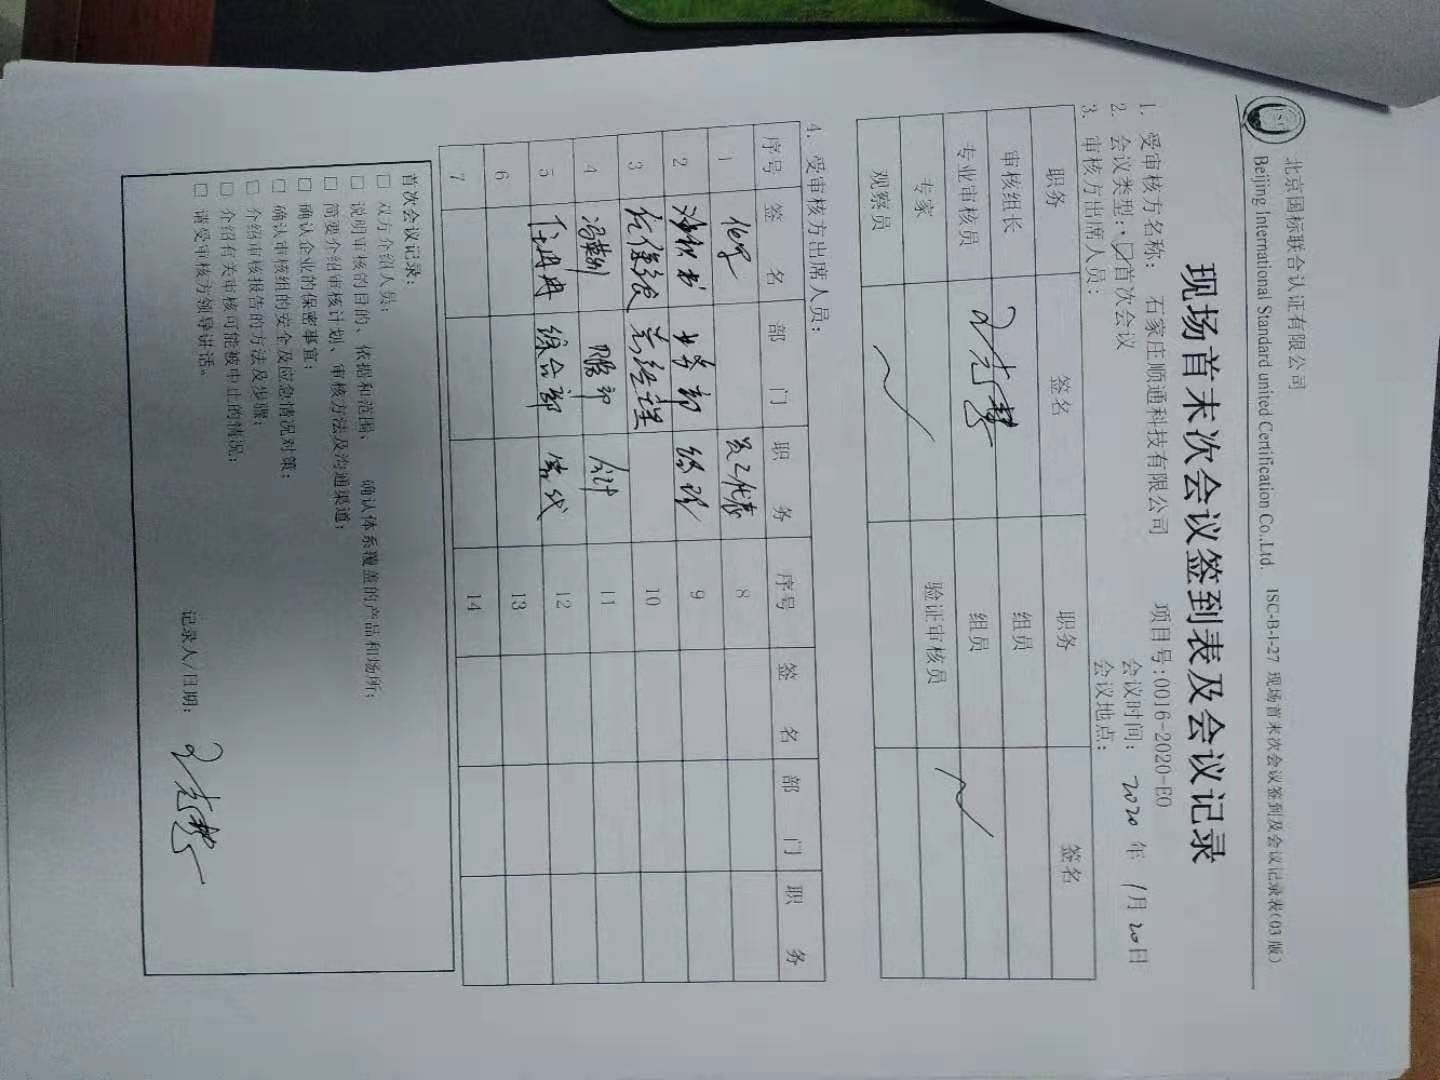 北京国标联合认证有限公司
Beijing International Standard united Certification Co.,Ltd. ISC-B-I-27 现场首末次会议签到及会议记录表(03版)
现场首末次会议签到表及会议记录
1. 受审核方名称: 石家庄顺通科技有限公司 项目号:0016-2020-EO
2. 会议类型: ☑首次会议 会议时间: 2020年 1月20日
3. 审核方出席人员: 会议地点:
职务 签名 职务 签名
审核组长 组员
专业审核员 组员
专家 验证审核员
观察员
4. 受审核方出席人员:
序号 签名 部门 职务 序号 签名 部门 职务
1 员工代表 8
2 业务部 经理 9
3 总经理 10
4 部 会计 11
5 任丹丹 综合部 管代 12
6 13
7 14
首次会议记录:
□ 双方介绍人员;
□ 说明审核的目的、依据和范围, 确认体系覆盖的产品和场所;
□ 简要介绍审核计划、审核方法及沟通渠道;
□ 确认企业的保密事宜;
□ 确认审核组的安全及应急情况对策;
□ 介绍审核报告的方法及步骤;
□ 介绍有关审核可能被中止的情况;
□ 请受审核方领导讲话。
记录人/日期: